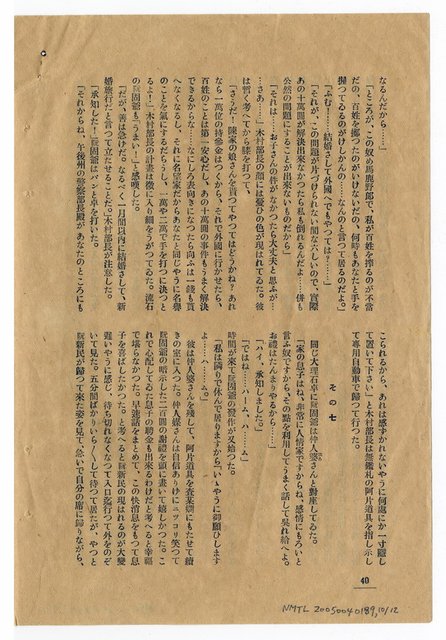 なるんだから……」
「ところが、この奴め馬鹿野郎で、私が百姓を搾るのが不當
だの、百姓を擲つたのがいけないだの、何時もあなたと手を
握つてるのがけしかんの……なんのと言つて居るのだよ。」
「ふむ！……結婚さして外國へでもやつては？……」
「それが、この問題が片づけられない間な六しいので、實際
あの十萬圓が解決出來なかつたら私も倒れるんだよ……併も
公然の問題にすることが出來ないものだから」
「それは……お子さんの件がなかつたら大丈夫と思ふが
……さあ……」木村部長の顔には憂ひの色が現はれてゐた。彼
は暫く考へてから膝を打つて、
「さうだ！陳家の娘さんを貰つてやつてはどうかね？あれ
なら一位萬の持參金はつくから、それで外國に行かせたら、
百姓のことは第一安心だし、あの十萬圓の事件もうまく解決
できるからな……なにしろ表向きになつたら向ふは一錢も貰
へなくなるし、それに名望家だからあなたと同じやうに名譽
のことを氣にするだらうし、一萬や二萬で手を打つに決つと
るよ！」木村部長の計畫は微に入り細をうがつてゐた。流石
の阮固爺も「うまい！」と感嘆した。
「だが、善は急げだ。なるべく一月間以内に結婚さして、新
婚旅行だと言つて立たせることだ。」木村部長が注意した。
「承知した！」阮固爺はポンと卓を打つた。
「それからね、午後州の警察部長殿があなたのところにも
こられるから、あれは感ずかれないやうに何處にか一寸隱し
て置いて下さい」と木村部長は無鑑札の阿片道具を指し示し
て專用自動車で歸つて行つた。
その七
同じ大理石卓に阮固爺は仲人婆さんと對座してゐた。
「家の息子はね、非常に人情家ですからね、感情にもろいと
言ふ奴ですから、その點を利用してうまく話して呉れ給へよ。
お禮はたんまりやるから……」
「ハイ、承知しました。」
「ではね……ハーム、ハ……ム」
時間が來て阮固爺の發作が又始つた。
「私は隣りで休んで居りますから、いゝやうに御願ひします
よ……ハ……ム。」
彼は仲人婆さんを殘して、阿片道具を査某嫺にもたせて續
きの室に入つた。仲人媒さんは自信ありげにニッコリ笑つて
阮固爺の暗示した二百圓の謝禮を頭に畫いて嬉しかつた。こ
れで心配してゐた息子の聘金も出來るわけだと考へると幸福
で堪らなかつた。早速話をまとめて、この快消息をもつて息
子を喜ばしたかつた。と考へると阮新民の現はれるのが大變
遲いやうに感じ、待ち切れなくなつて入口迄行つて外をのぞ
いて見た。五分間ばかりいら〳〵して待つて居たが、やつと
阮新民が歸つて來た姿を見て、急いで自分の席に歸りながら、
40
NMTL 20050040189, 10/12